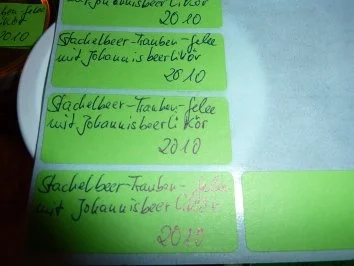 ben-Gelee
ikör
2010
mit Johannisbeerlikör
2010
Stachelbeer-Trauben-Gelee
mit Johannisbeerlikör
2010
Stachelbeer-Trauben-Gelee
mit Johannisbeerlikör
2010
Stachelbeer-Trauben-Gelee
mit Johannisbeerlikör
2010